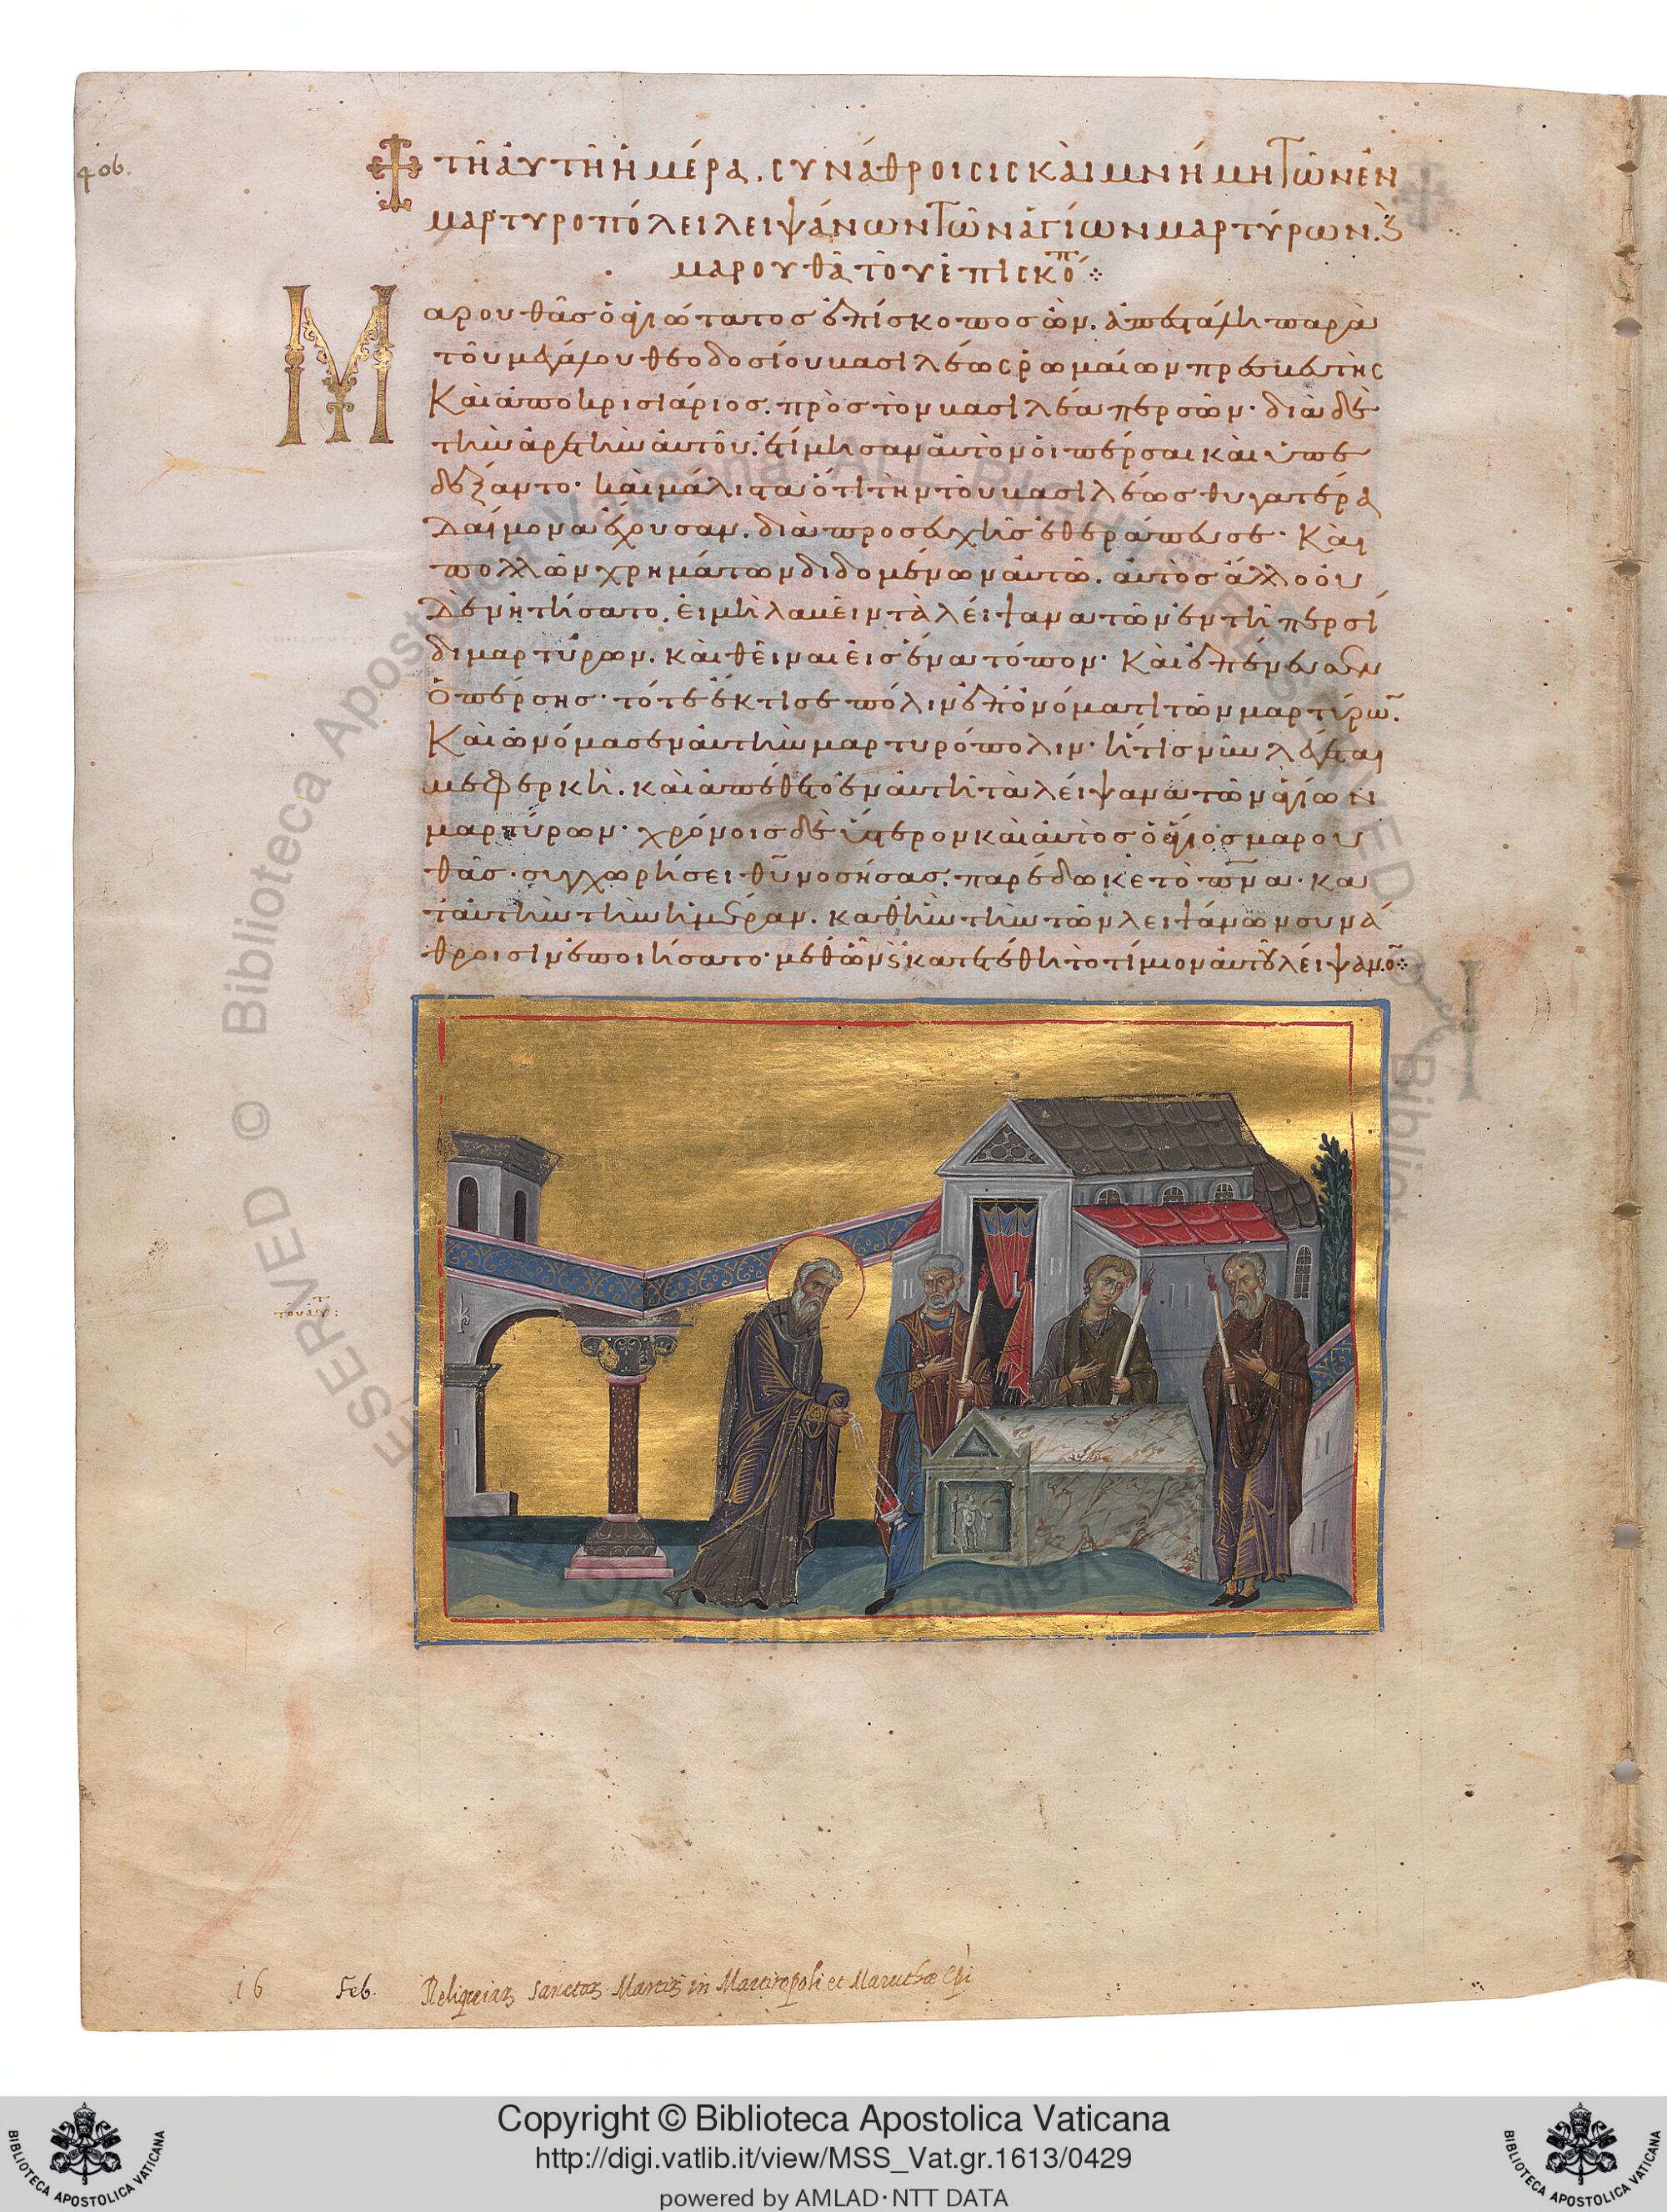 406.
τῆ αὐτῆ ἡμέρα. συνάθροισις καὶ μνήμη τῶν ἐν
μαρτυροπόλει λειψάνων τῶν ἁγίων μαρτύρων. ϗ
μαρουθᾶ τοῦ ἐπισκόπ
Μαρουθᾶς ὁ ἁγιώτατος ἐπίσκοπος ὢν. ἀπεστάλη παρὰ
τοῦ μεγάλου θεοδοσίου βασιλέως ῥωμαίων πρεσβευτὴς
Καὶ ἀποκρισιάριος. πρὸς τὸν βασιλέα περσῶν· διὰ δὲ
τὴν ἀρετὴν αὐτοῦ. ἐτίμησαν αὐτὸν οἱ πέρσαι καὶ ὑπε
δέξαντο· καὶ μάλιστα ὅτι τὴν τοῦ βασιλέως θυγατέρα
Δαίμονα ἔχουσαν. διὰ προσευχῆς ἐθεράπευσε· Καὶ
πολλῶν χρημάτων διδομένων αὐτῶ. αὐτὸς ἄλλο οὐ
Δὲν ἠτήσατο. εἰ μὴ λαβεῖν τὰ λείψανα τῶν ἐν τῆ περσί
δι μαρτύρων. καὶ θεῖναι εἰς ἕνα τόπον· Καὶ ἐπένευσεν
Ὁ πέρσης· τότε ἔκτισε πόλιν ἐπ' ὀνόματι τῶν μαρτύρω.
Καὶ ὠνόμασεν αὐτὴν μαρτυρόπολιν· ἥτις νῦν λέγεται
μεφερκή. καὶ ἀπέθετο ἐν αὐτῆ τὰ λείψανα τῶν ἁγίων
μαρτύρων· χρόνοις δὲ ὕστερον καὶ αὐτὸς ὁ ἅγιος μαρου
θᾶς· συγχωρήσει θυ νοσήσας. παρέδωκε τὸ πνα· κα
τ' αὐτὴν τὴν ἡμέραν. καθ' ἣν τὴν τῶν λειψάνων συνά
θροισιν ἐποιήσατο· μεθ' ὧν ϗ κατετέθη τὸ τίμιον αὐτοῦ λείψανο
16 Feb. Reliquiar Sanctor Martir in Martiropoli et Maruthæ Epi
Copyright © Biblioteca Apostolica Vaticana
http://digi.vatlib.it/view/MSS_Vat.gr.1613/0429
powered by AMLAD·NTT DATA
BIBLIOTECA APOSTOLICA VATICANA
BIBLIOTECA APOSTOLICA VATICANA
Biblioteca Apostolica Vaticana ALL RIGHTS RESERVED ©